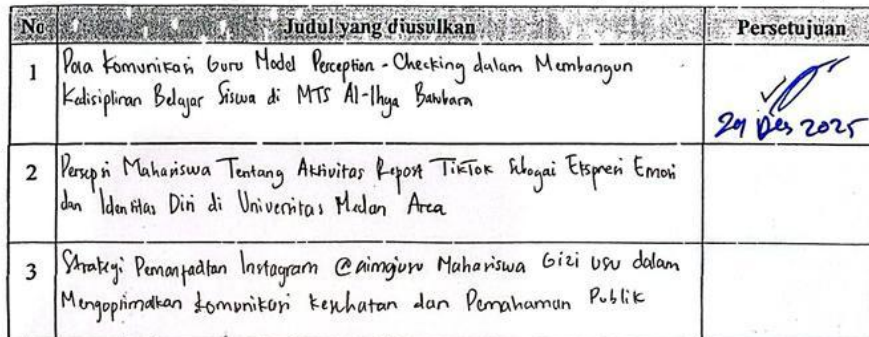 No Judul yang diusulkan Persetujuan
1 Pola Komunikasi Guru Model Perception - Checking dalam Membangun
Kedisiplinan Belajar Siswa di MTS Al-Ihya
29 Des 2025
2 Persepsi Mahasiswa Tentang Aktivitas Repost TikTok Sebagai Ekspresi Emosi
dan Identitas Diri di Universitas Medan Area
3 Strategi Pemanfaatan Instagram Mahasiswa Gizi USU dalam
Mengoptimalkan Komunikasi Kesehatan dan Pemahaman Publik